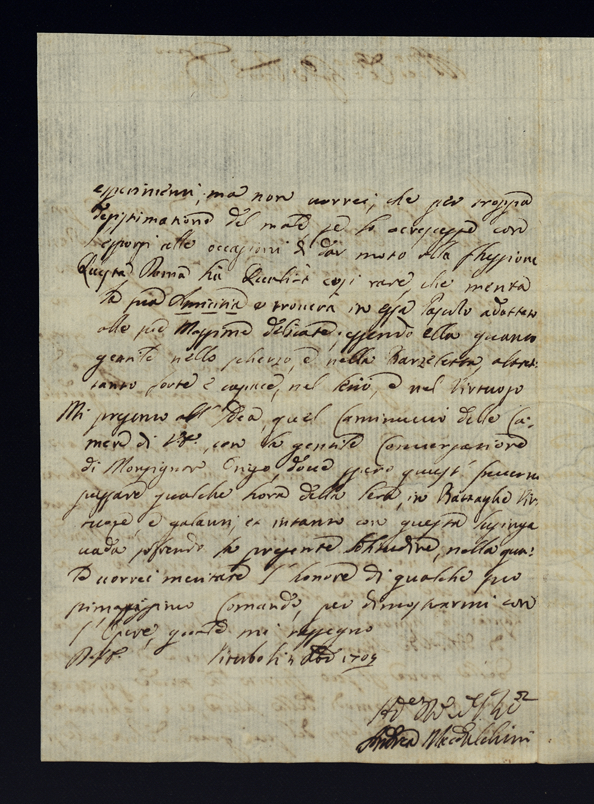 esperimenti, ma non vorrei, che per troppa
del male se lo accrescesse con
esporsi alle occasioni di dar moto alla flussione
Questa Dama hà Qualità così rare, che merita
la sua Amicizia e troverà in essa Pascolo adattato
alle più Massime delicate, essendo ella quanto
gentile nello scherzo, e nella Barzeletta, altret-
tanto forte e capace, nel serio, e nel Virtuoso
Mi presento all' Idea, quel Caminuccio delle Ca-
mere di V.S., con la gentile Conversazione
di Monsignor dove spero quest'
passare qualche hora della sera, in Battaglie Vir-
tuose e galanti, et intanto con questa lusinga
vado soffrendo la presente solitudine, nella qua-
le vorrei meritare l' honore di qualche suo
Comando, per dimostrarmi con
l' Opere, quale mi rassegno
Viterbo li 1709
Andrea Maidalchini